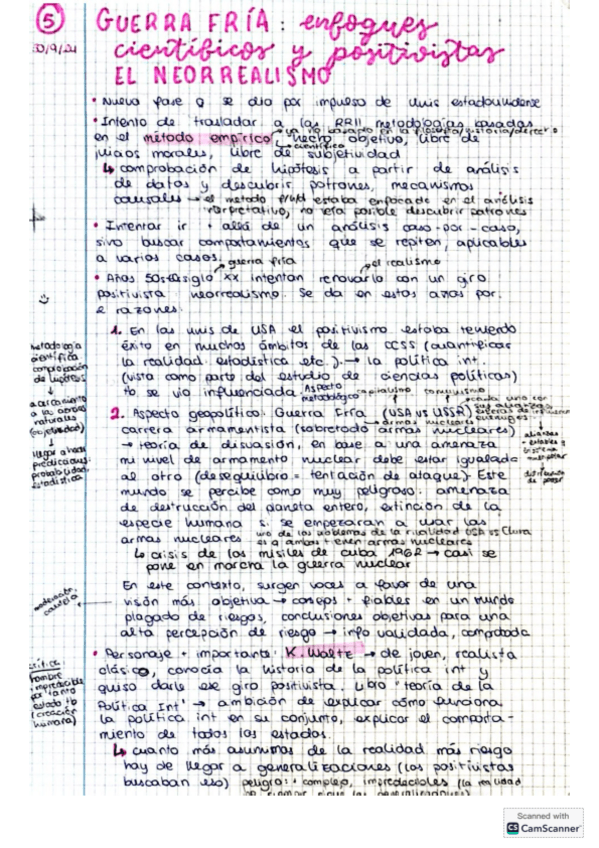 5
30/9/24
GUERRA FRÍA: enfoques
científicos y positivistas
EL NEORREALISMO
• Nueva fase q se dio por impulso de unis estadounidense
• Intento de trasladar a las RRII metodologías basadas
ya no basado en la filosofía/historia/derecho
en el método empírico, hecho objetivo, libre de
científico
juicios morales, libre de subjetividad
↳ comprobación de hipótesis a partir de análisis
de datos y descubrir patrones, mecanismos
causales → el método trad estaba enfocado en el análisis
interpretativo, no era posible descubrir patrones
• Intentar ir + allá de un análisis caso-por-caso,
sino buscar comportamientos que se repiten, aplicables
a varios casos.
guerra fría
el realismo
• Años 50s siglo XX intentan renovarlo con un giro
positivista: neorrealismo. Se da en estos años por
2 razones:
1. En las unis de USA el positivismo estaba teniendo
éxito en muchos ámbitos de las CCSS (cuantificar
la realidad estadística etc.). → la política int.
(vista como parte del estudio de ciencias políticas)
tb se vio influenciada
Aspecto
metodológico
capitalismo
comunismo
2. Aspecto geopolítico: Guerra Fría (USA vs URSS)
cada uno con
sus alianzas,
carrera armamentista (sobretodo armas nucleares)
→ teoría de disuasión, en base a una amenaza
mi nivel de armamento nuclear debe estar igualada
al otro (desequilibrio = tentación de ataque). Este
mundo se percibe como muy peligroso: amenaza
de destrucción del planeta entero, extinción de la
especie humana si se empezaran a usar las
armas nucleares
uno de los problemas de la rivalidad USA vs China
es q ambos tienen armas nucleares
↳ crisis de los misiles de Cuba 1962 → casi se
pone en marcha la guerra nuclear
En este contexto, surgen voces a favor de una
visión más objetiva → consejos + fiables en un mundo
plagado de riesgos, conclusiones objetivas para una
alta percepción de riesgo → info validada, comprobada
• Personaje + importante: K. Waltz → de joven, realista
clásico, conocía la historia de la política int y
quiso darle ese giro positivista. Libro "teoría de la
Política Int" → ambición de explicar cómo funciona
la política int en su conjunto, explicar el comporta-
miento de todos los estados.
↳ cuanto más asumimos de la realidad más riesgo
hay de llegar a generalizaciones (los positivistas
buscaban eso)
peligro: + complejo, impredecibles (la realidad
Metodología
científica
comprobación
de hipótesis
↓
acercamiento
a las ciencias
naturales
(objetividad)
↓
llegar a hacer
predicciones,
probabilidad,
estadística
alianzas
estables y
distribución
de poder
crítica:
hombre
impredecible
por tanto
estado tb
(creación
humana)
Scanned with
CS CamScanner